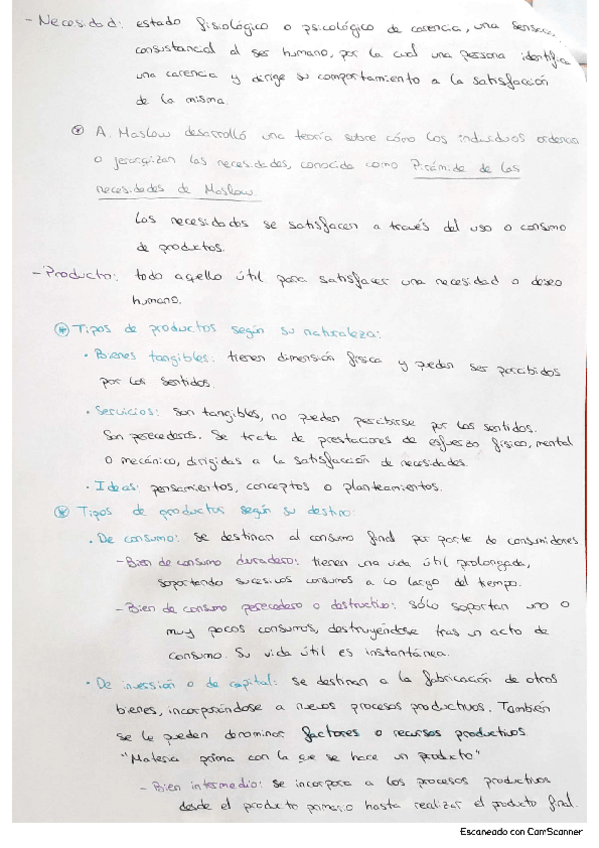 - Necesidad: estado fisiológico o psicológico de carencia, una sensac
consustancial al ser humano, por la cual una persona identifica
una carencia y dirige su comportamiento a la satisfacción
de la misma.
A. Maslow desarrolló una teoría sobre cómo los individuos ordenan
o jerarquizan las necesidades, conocida como Pirámide de las
necesidades de Maslow.
Las necesidades se satisfacen a través del uso o consumo
de productos.
- Producto: todo aquello útil para satisfacer una necesidad o deseo
humano.
Tipos de productos según su naturaleza:
· Bienes tangibles: tienen dimensión física y pueden ser percibidos
por los sentidos.
· Servicios: son tangibles, no pueden percibirse por los sentidos.
Son perecederos. Se trata de prestaciones de esfuerzo físico, mental
o mecánico, dirigidas a la satisfacción de necesidades.
· Ideas: pensamientos, conceptos o planteamientos.
Tipos de productos según su destino:
· De consumo: se destinan al consumo final por parte de consumidores
- Bien de consumo duradero: tienen una vida útil prolongada,
soportando sucesivos consumos a lo largo del tiempo.
- Bien de consumo perecedero o destructivo: sólo soportan uno o
muy pocos consumos, destruyéndose tras un acto de
consumo. Su vida útil es instantánea.
· De inversión o de capital: se destinan a la fabricación de otros
bienes, incorporándose a nuevos procesos productivos. También
se le pueden denominar factores o recursos productivos
"Materia prima con la que se hace un producto"
- Bien intermedio: se incorpora a los procesos productivos
desde el producto primario hasta realizar el producto final.
Escaneado con CamScanner